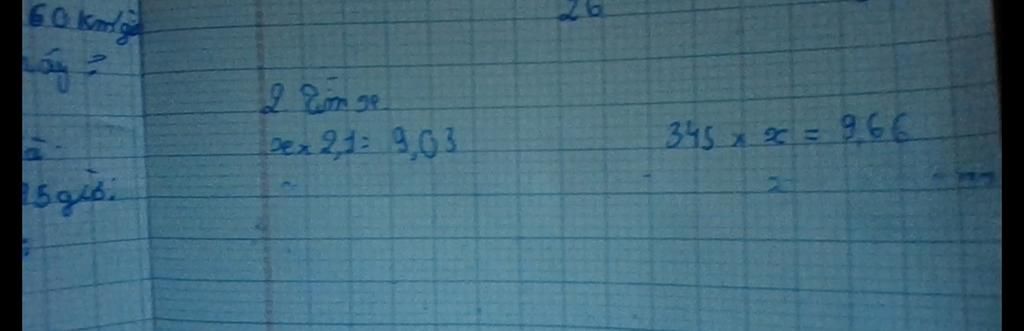 60 km/giờ
26
ấy ?
2 Tìm x
x × 2,1 = 9,03
345 × x = 9,66
15 giờ.